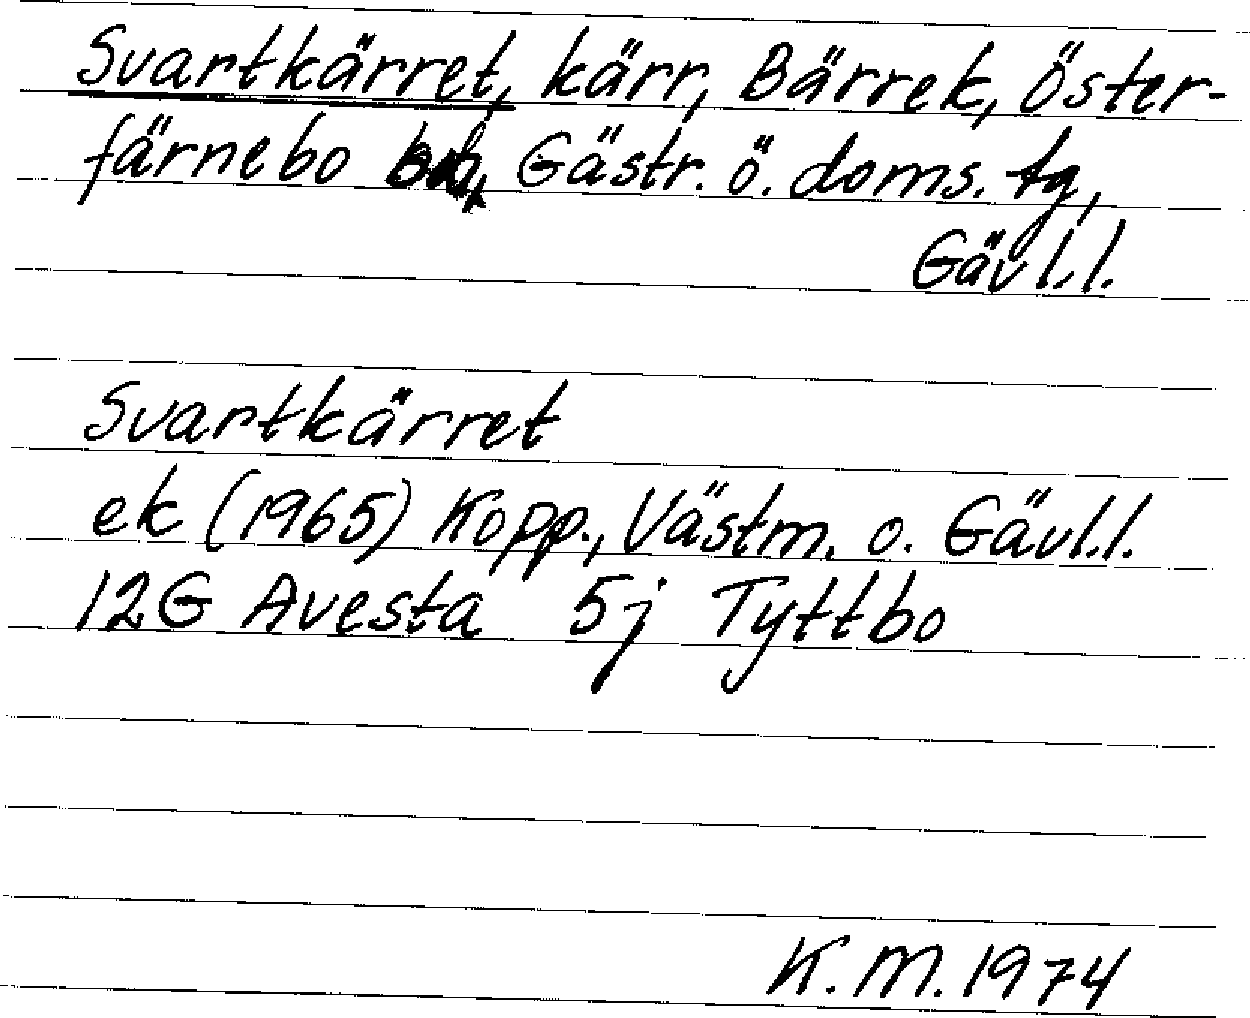 Svartkärret, kärr, Bärrek, Öster-
färnebo sn, Gästr. ö. doms. tg,
Gävl.l.
Svartkärret
ek (1965) Kopp., Västm. o. Gävl.l.
12G Avesta 5j Tyttbo
K.M. 1974